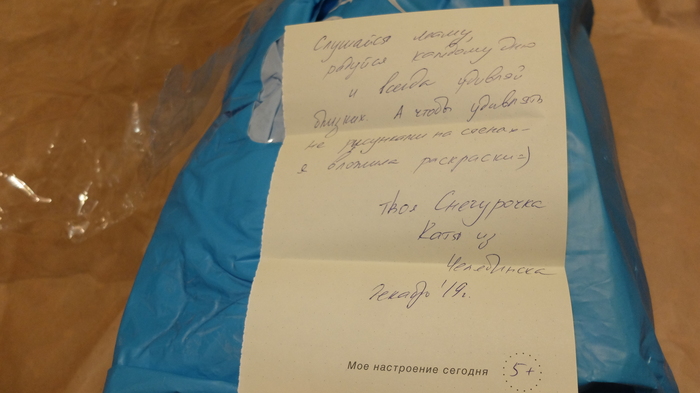 Слушайся маму,
радуйся каждому дню
и всегда удивляй
близких. А чтобы удивлять
не рисунками на стенах -
я вложила раскраски =)
Твоя Снегурочка
Катя из
Челябинска
Декабрь '19г.
Мое настроение сегодня 5+